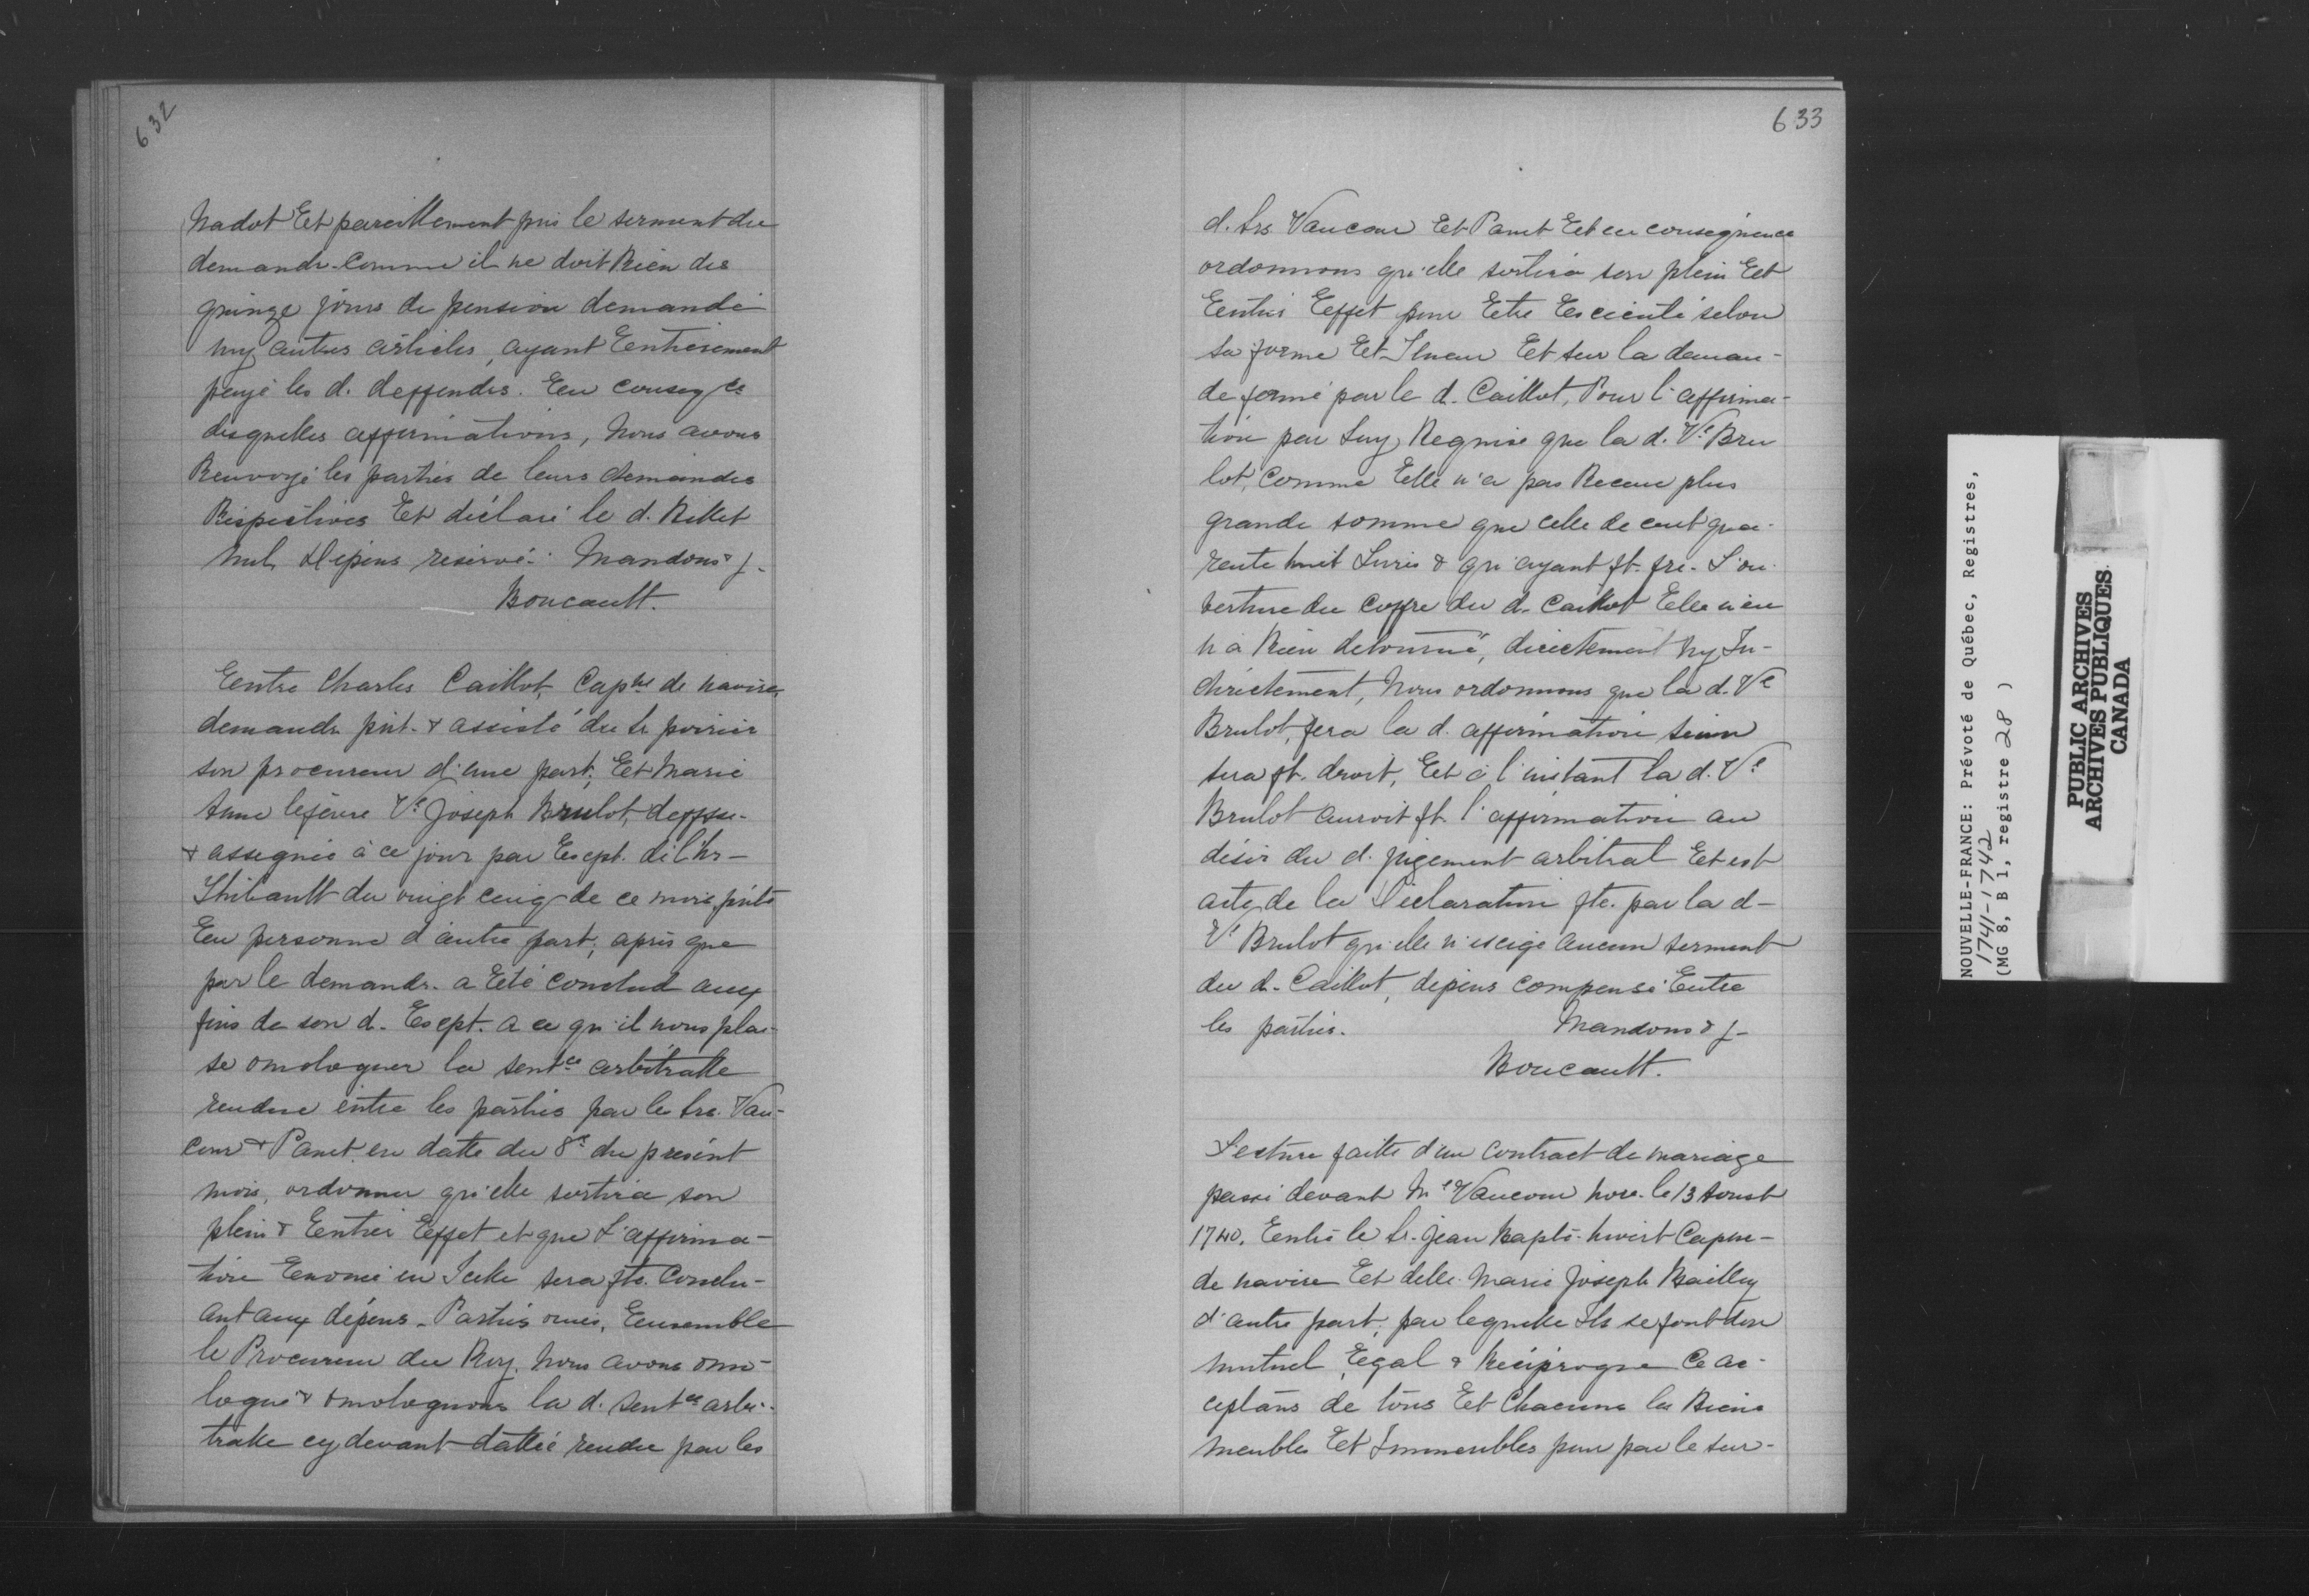 632
Nadot Et pareillement pris le serment du
demandr. Comme il ne doit Rien des
quinze jours de pension demandé
ny autres articles, ayant Entierement
payé les d. deffendrs. En conseq ce
desquelles affirmations, Nous avons
Renvoyé les parties de leurs demandes
Respectives Et déclaré le d. Billet
nul, Dépens reservé. Mandons & f.
Boucault.
Entre Charles Caillot, Cap ne de navire,
demandr. pnt. & assisté du Sr. poirier
son procureur d'une part; Et Marie
Anne lefévre Ve. Joseph Brulot, deffsse.
& assignée à ce jour parExpt. de l'hr.-
Thibault du vingt cinq de ce mois, pnte
En personne d'autre part; après que
par le demandr. a Eté conclud aux
fins de son d. Exept. a ce qu'il nous plai-
se omologuer la sent ce arbitralle
rendue entre les parties par les Srs. Vau-
cour & Panet en datte du 8e du présent
mois, ordonner qu'elle sortira son
plein & Entier Effet et que L'affirma-
tion Enoncé en Icelle sera fte. Conclu-
ant aux dépens. Parties ouies, Ensemble
le Procureur du Roy. Nous avons omo-
logué & omologuons la d. Sent ce arbi-
tralle cy devant dattée rendue par les
633
d. Srs Vaucour Et Panet Et en conséquence
ordonnons qu'elle sortira son plein Et
Entier Effet pour Etre Exécuté selon
sa forme Et Teneur Et sur la deman-
de formé par le d. Caillot, Pour l'affirma-
tion par Luy Requise que la d. Ve Bru
lot, Comme Elle n'a pas Receue plus
grande somme que celle de cent qua-
rente huit Livres & qu'ayant ft. fre. L'ou-
verture du coffre du d. Caillot Elle n'en
n'a Rien detourné, directement Ny In-
directement, Nous ordonnons que la d. Ve
Brulot, fera la d. affirmation sinon
sera ft. droit, Et à l'instant la d. Ve
Brulot auroit ft. l'affirmation au
désir du d. jugement arbitral Et est
acte de la Déclaration fte. par la d-
Ve Brulot qu'elle n'exige aucun serment
du d. Caillot, dépens compensé Entre
les parties. Mandons & f-
Boucault.
Lecture faitte d'un Contract de mariage
passé devant Me Vaucour nore. le 13 Aoust
1740. Entre le Sr. Jean Bapte. Capne-
de navire Et delle. Marie Joseph Bailley
d'autre part, par lequelle Ils se font don
mutuel, Egal & Réciproque Ce ac-
ceptans de tous Et Chacuns les Biens
meubles Et Immeubles pour par le sur-
NOUVELLE-FRANCE: Prévoté de Québec, Registres,
1741-1742
(MG 8, B 1, registre 28 )
PUBLIC ARCHIVES
ARCHIVES PUBLIQUES
CANADA